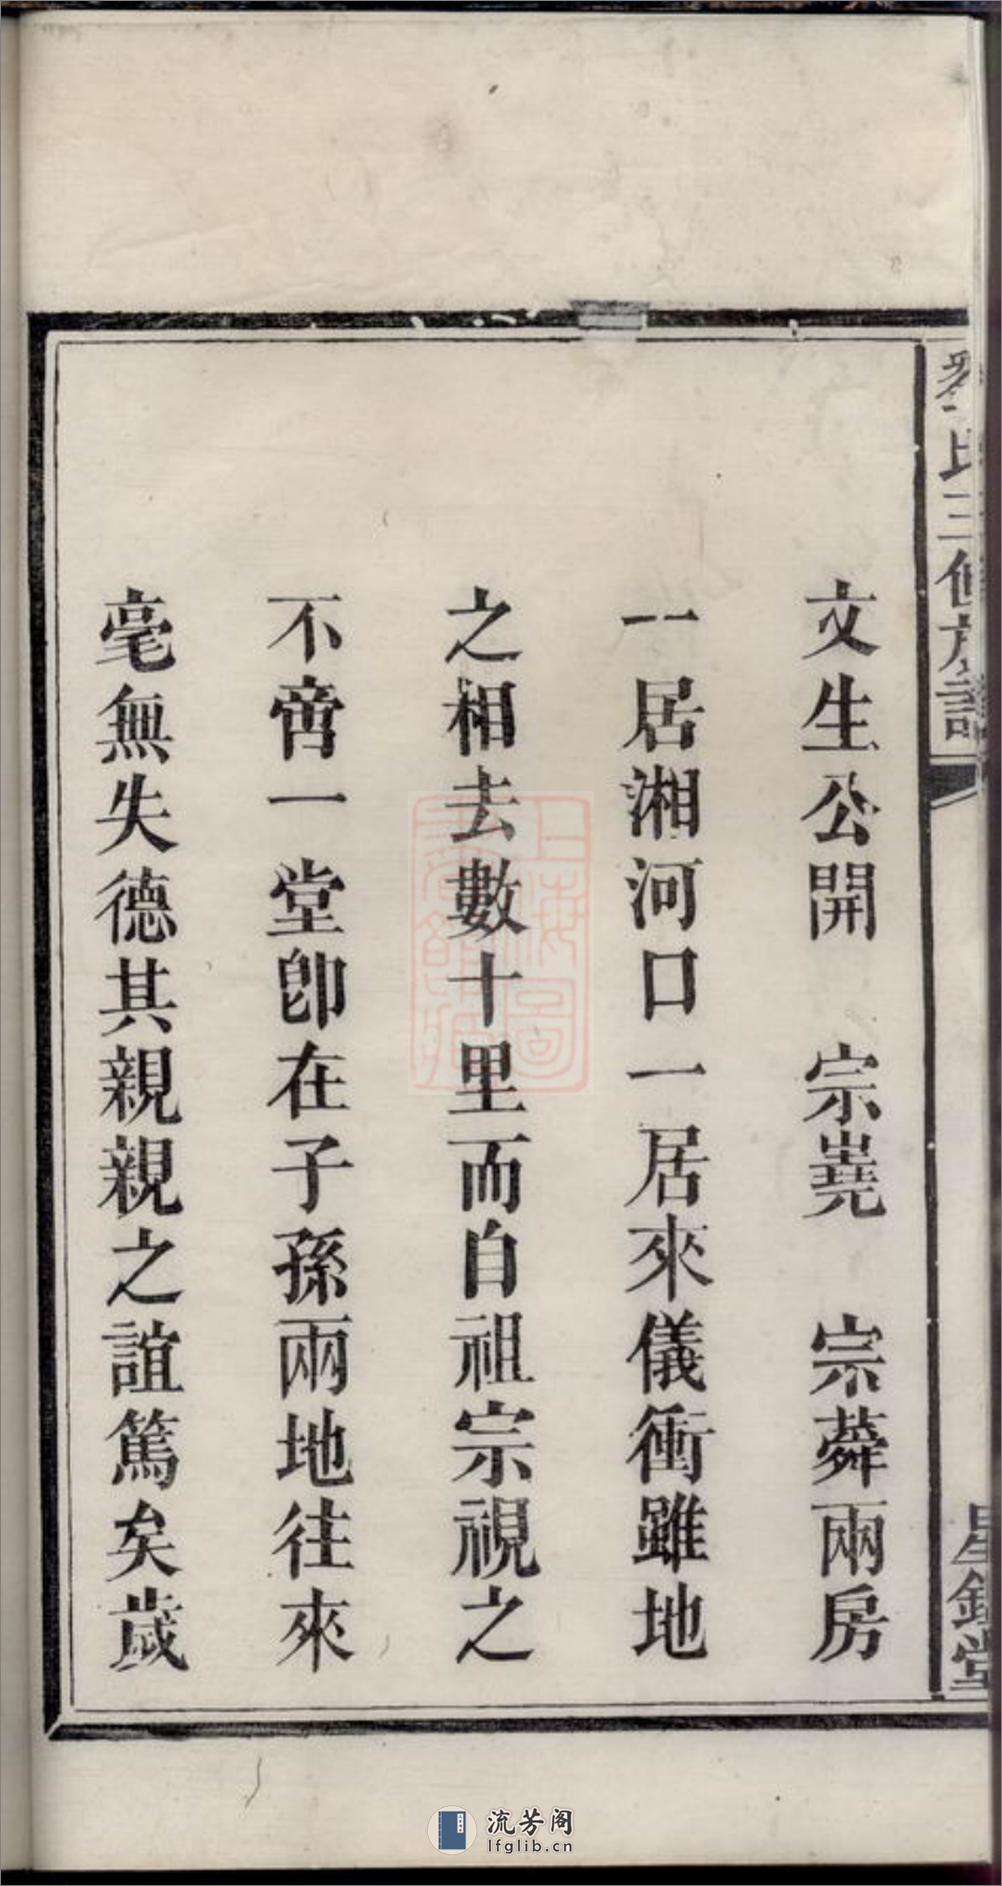 氏三修族譜
星錦堂
文生公開 宗嶤 宗蕣兩房
一居湘河口一居來儀衝雖地
之相去數十里而自祖宗視之
不啻一堂卽在子孫兩地往來
毫無失德其親親之誼篤矣歲
上海圖書館藏
流芳阁
lfglib.cn